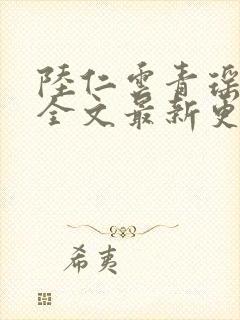 陸仁雲青瑶
全文最新更
希夷